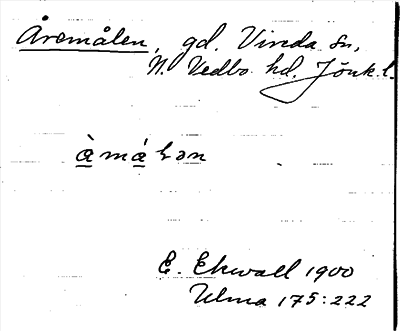 Åremålen, gd. Vireda sn,
N. Vedbo hd. Jönk. l.
àmá lən
E. Ekwall 1900
Ulma 175:222